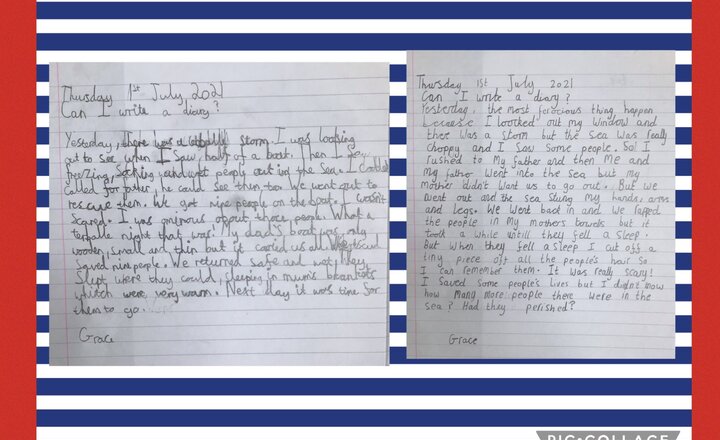 Thursday 1st July 2021
Can I write a diary?
Yesterday, there was a storm I was looking
out to see when I saw half of a boat. Then I
freezing, and wet people out in the sea. I
called for father, he could see them too. We went out to
rescue them. We got nine people on the boat. I wasn't
scared. I was about those people. What a
terrible night that was. My dad's boat was only
wooden, small and thin but it carried us all. We
saved nine people. We returned safe and wet, they
slept were they could, sleeping in mum's
which were very warm. Next day it was time for
them to go.
Grace
Thursday 1st July 2021
Can I write a diary?
Yesterday, the most ferocious thing happen
I loocked out my window and
there was a storm but the sea was really
choppy and I saw some people. So I
rushed to my father and then me and
my father went into the sea but my
mother didn't want us to go out. But we
went out and the sea stung my hands, arms
and legs. We went back in and we
the people in my mothers towels but it
toock a while untill they fell a sleep.
But when they fell a sleep I cut off a
tiny piece off all the people's hair so
I can remember them. It was really scary!
I saved some people's lives but I didn't know
how many more people there were in the
sea? Had they perished?
Grace
PIC•COLLAGE